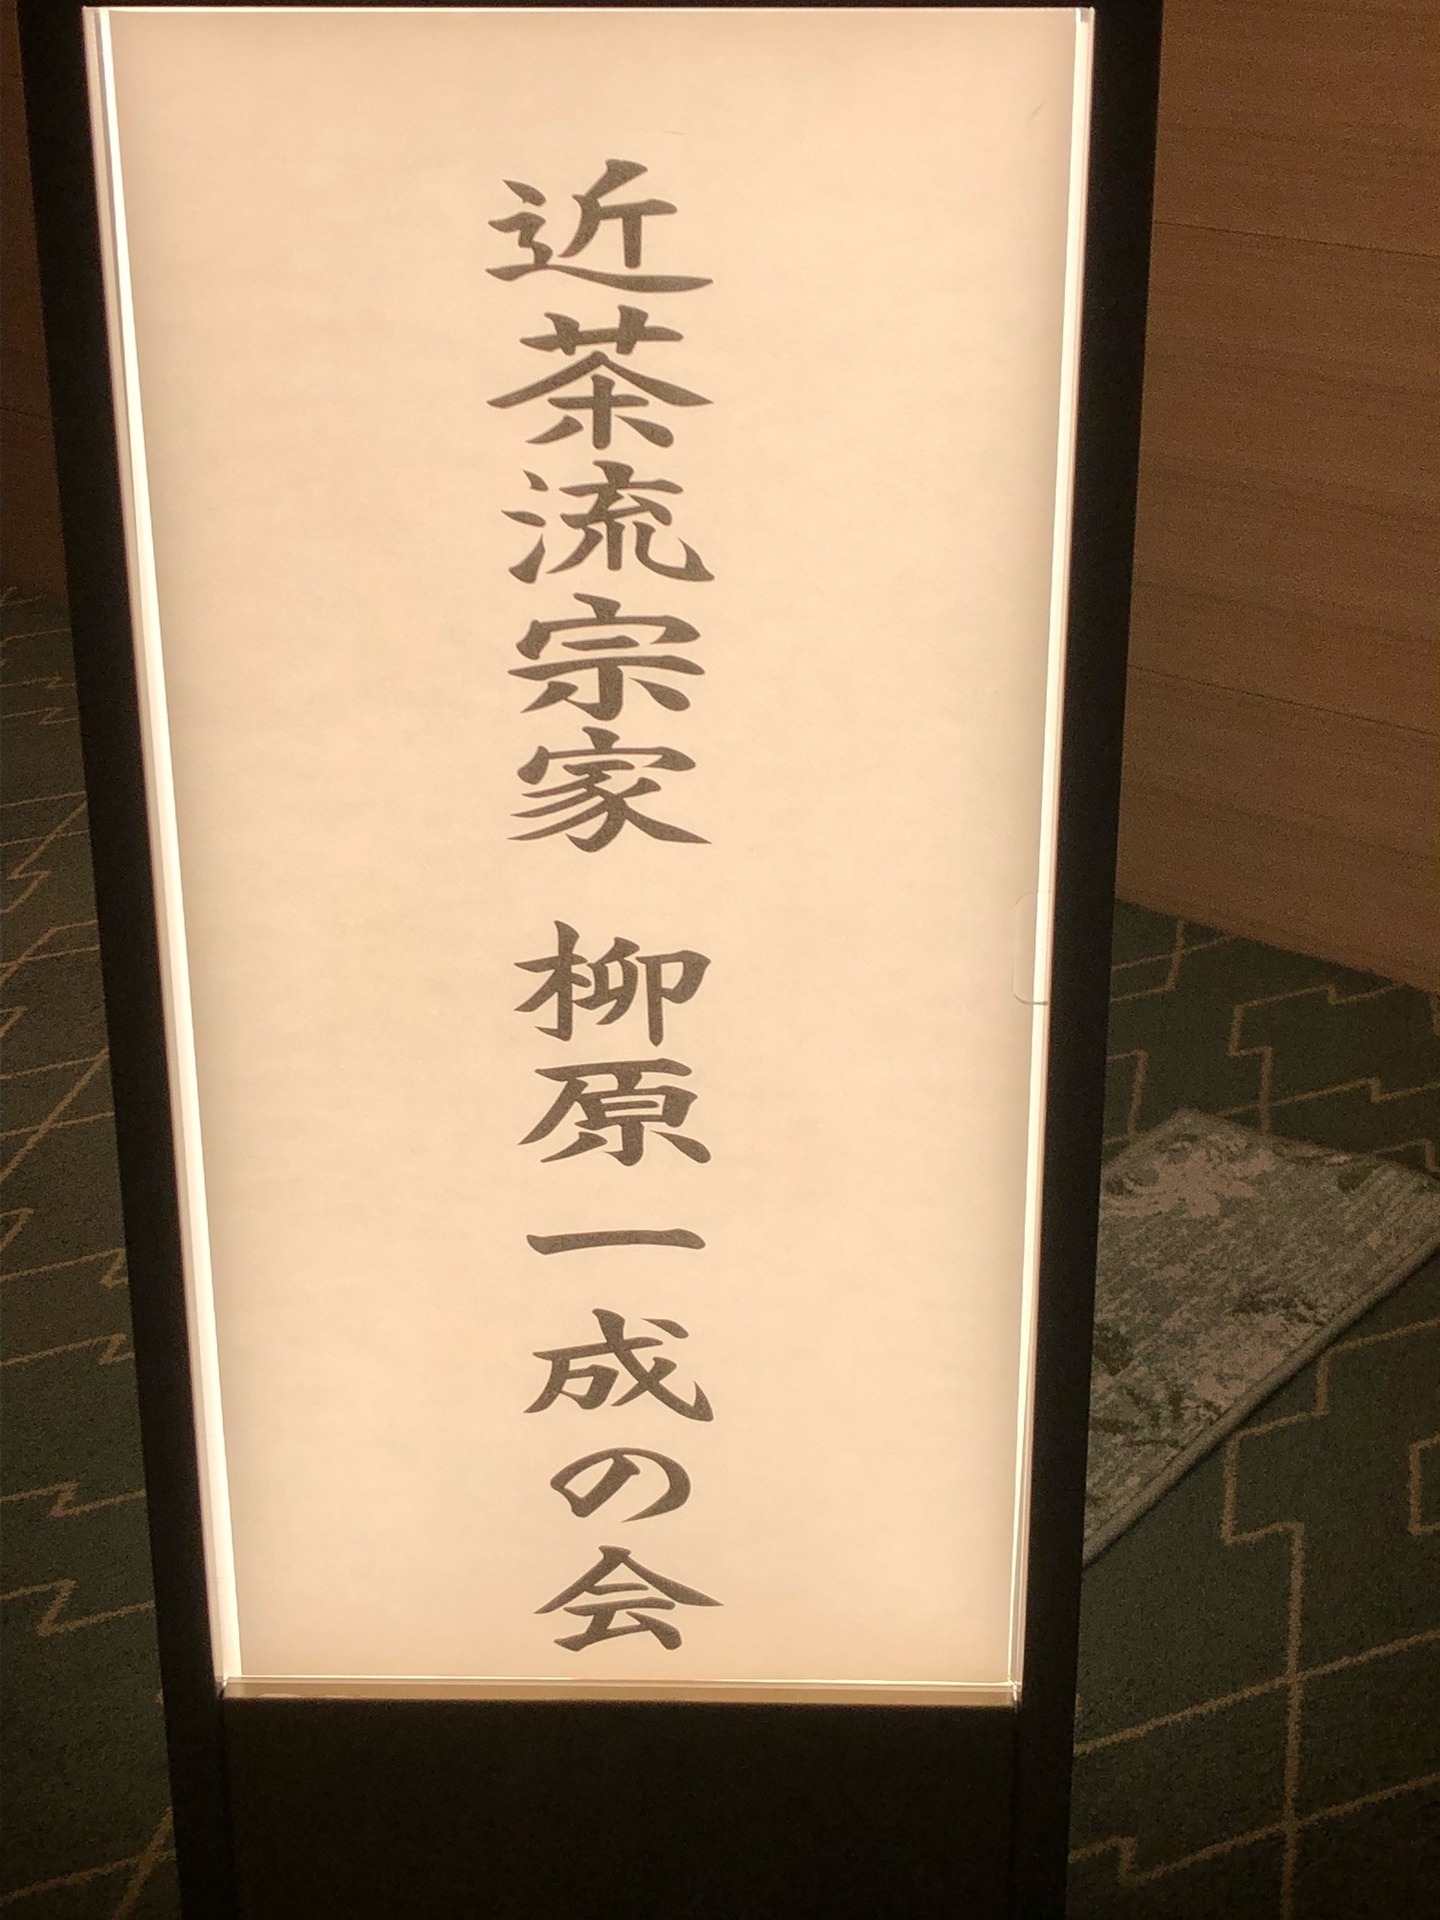 近茶流宗家 柳原一成の会